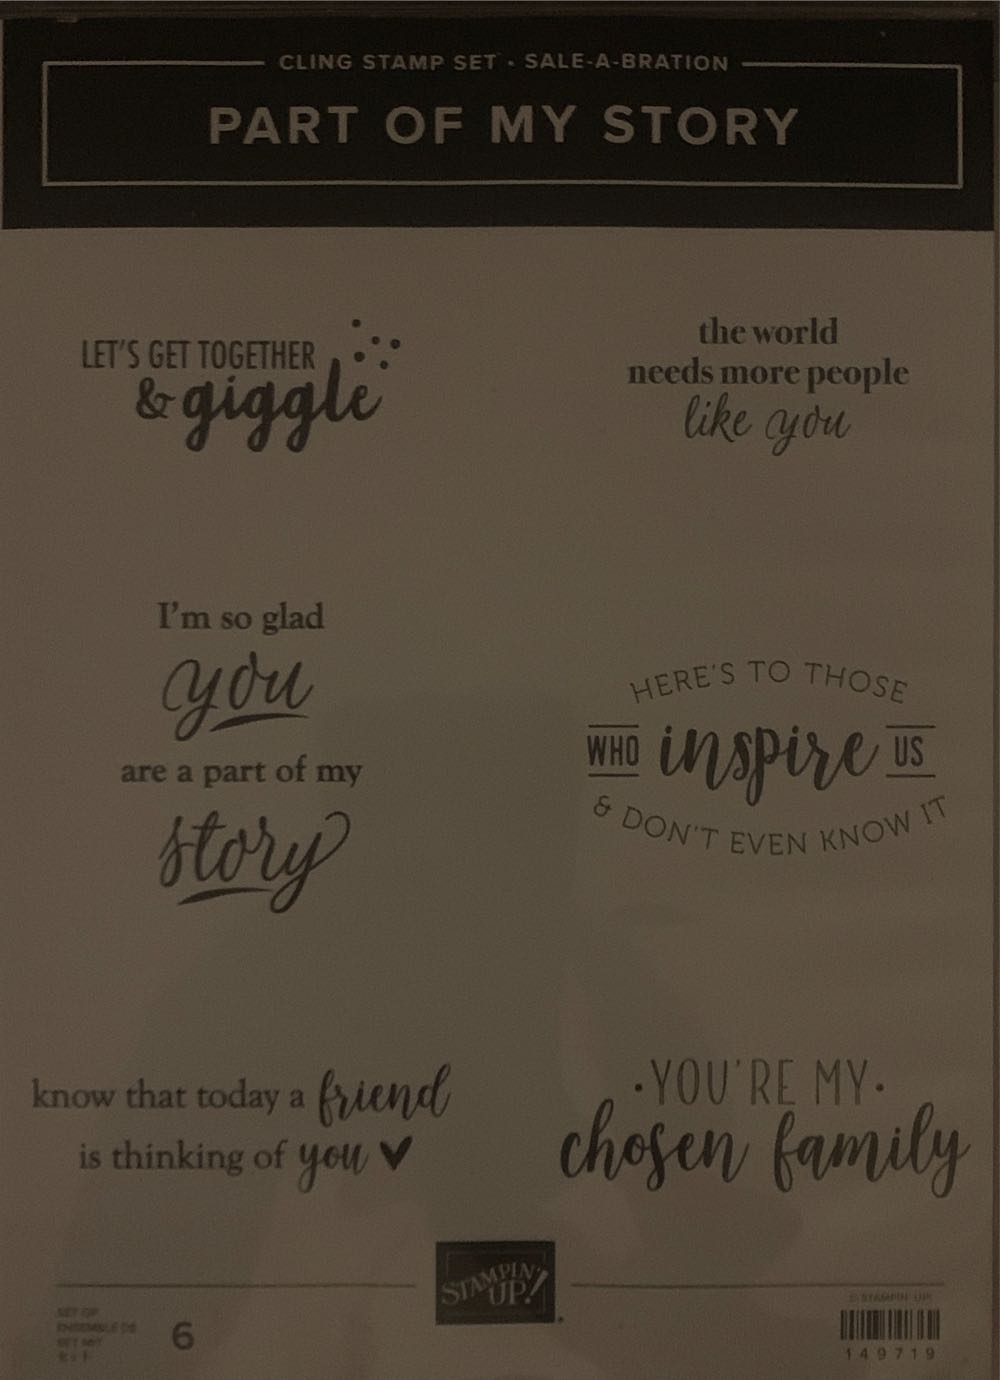 CLING STAMP SET • SALE-A-BRATION
PART OF MY STORY
LET'S GET TOGETHER
& giggle
the world
needs more people
like you
I'm so glad
you
are a part of my
story
HERE'S TO THOSE
WHO inspire US
& DON'T EVEN KNOW IT
know that today a friend
is thinking of you
YOU'RE MY
chosen family
STAMPIN' UP!
SET OF
ENSEMBLE DE
SET MIT
セット
6
© STAMPIN' UP!
149719